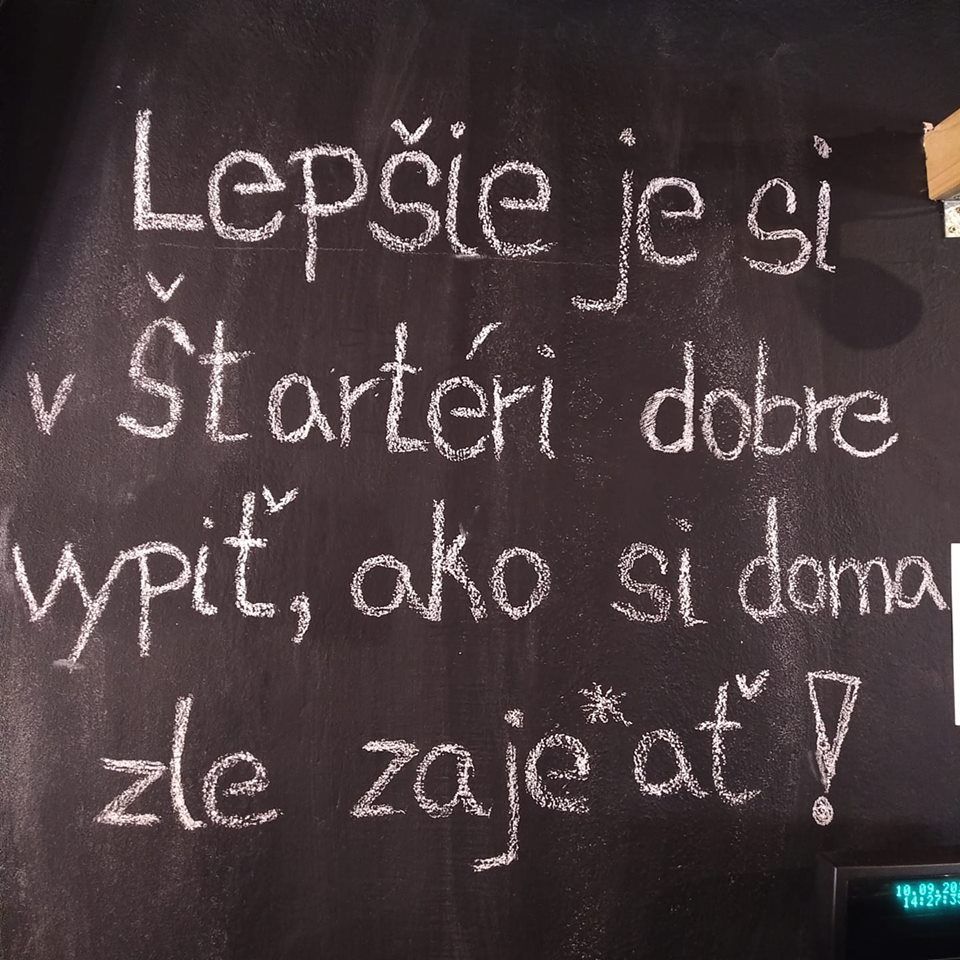 Lepšie je si
v Štartéri dobre
vypiť, ako si doma
zle zaje*ať!
10.09.20
14:27:3